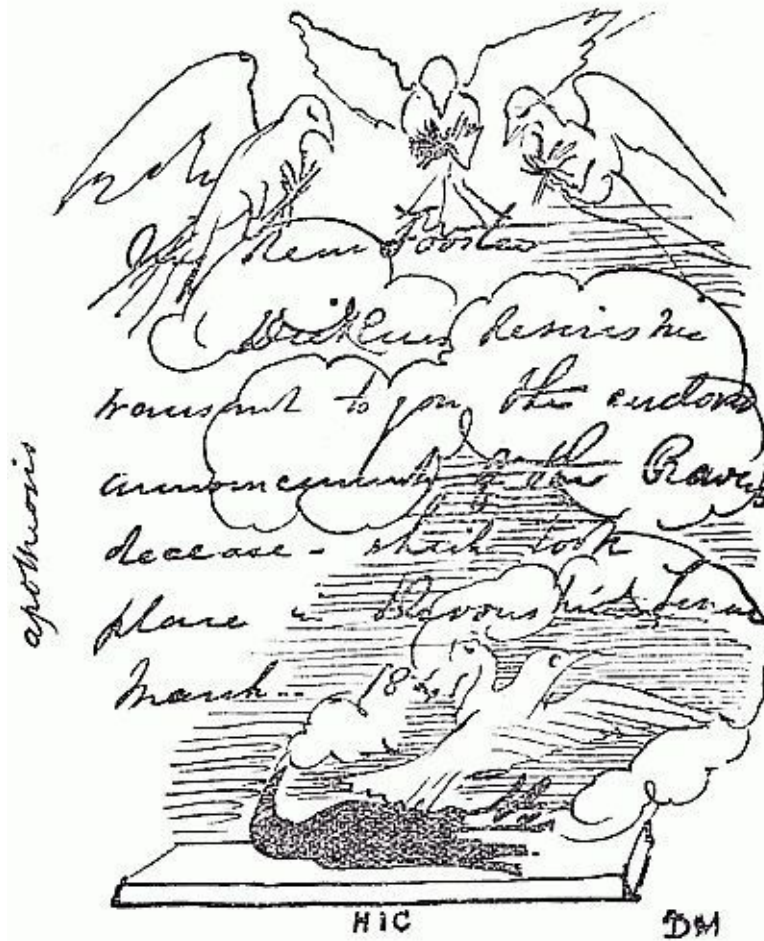 My dear Forster
Dickens desires me
transmit to you the enclosed
announcement of the Ravens
decease - which took
place in Devonshire Terrace
March.. 1841
apotheosis
HIC
DM